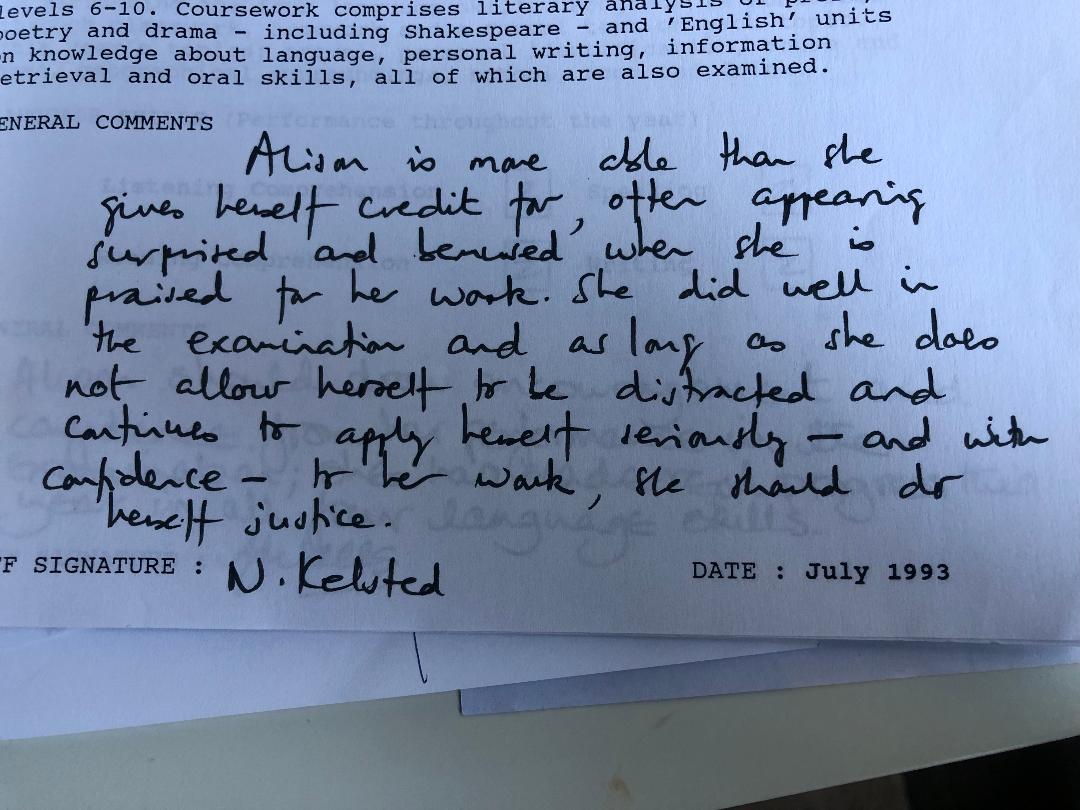 levels 6-10. Coursework comprises literary analysis of
poetry and drama - including Shakespeare - and 'English' units
on knowledge about language, personal writing, information
etrieval and oral skills, all of which are also examined.
ENERAL COMMENTS
(Performance throughout the year)
Alison is more able than she
gives herself credit for, often appearing
surprised and bemused when she is
praised for her work. She did well in
the examination and as long as she does
not allow herself to be distracted and
continues to apply herself seriously – and with
confidence – to her work, she should do
herself justice.
F SIGNATURE : N. Kelsted
DATE : July 1993